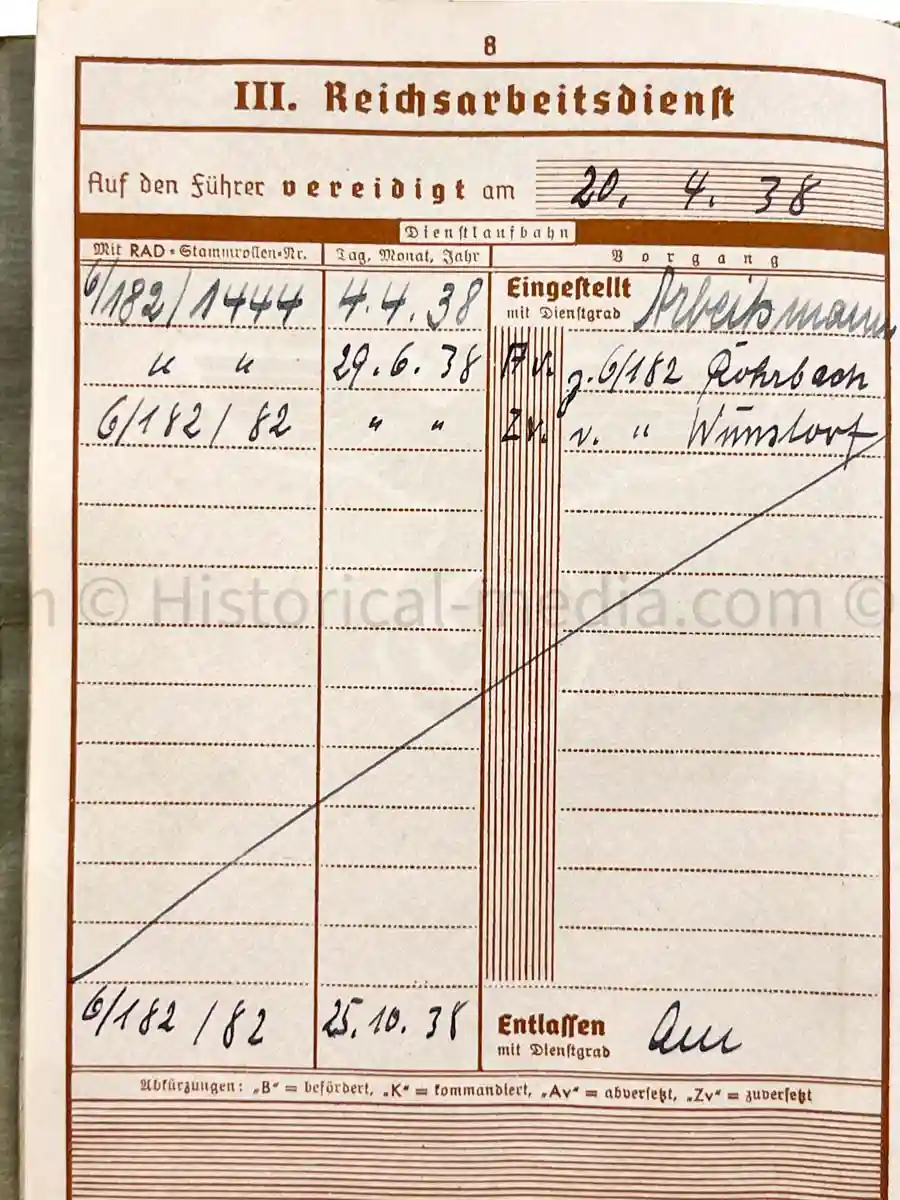 8
III. Reichsarbeitsdienst
Auf den Führer vereidigt am 20. 4. 38
Dienstlaufbahn
Mit RAD-Stammrollen-Nr. Tag, Monat, Jahr Vorgang
6/182/1444 4.4.38 Eingestellt mit Dienstgrad Arbeitsmann
" " 29.6.38 Av. z. 6/182 Rohrbach
6/182/82 " " Zv. v. " Wunstorf
© Historical-media.com ©
6/182/82 25.10.38 Entlassen mit Dienstgrad
Abkürzungen: „B“ = befördert, „K“ = kommandiert, „Av“ = abversetzt, „Zv“ = zuversetzt